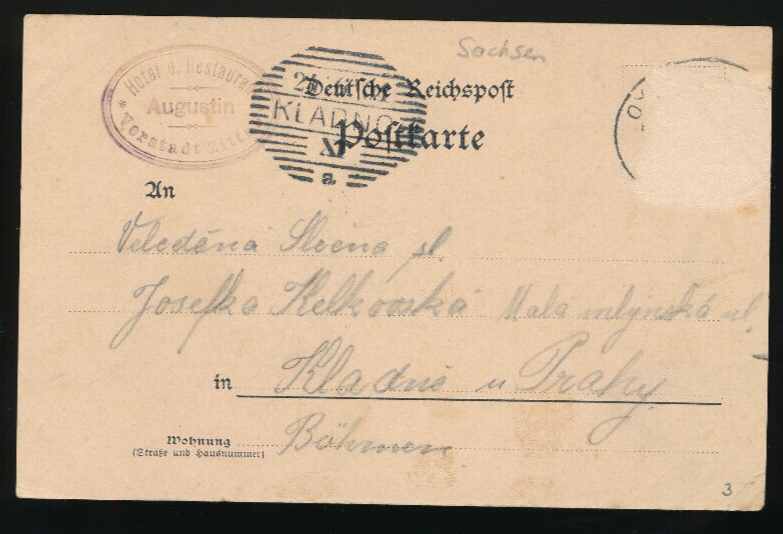 Sachsen
Hotel u. Restaura
Augustin
* Vorstadt Zitt
KLADNO
XI
a
Deutsche Reichspost
Postkarte
An
Veleděná Slečna sl.
Josefka Kelkovská Mala mlýnská ul.
in Kladně u Prahy
Böhmen.
Wohnung
(Straße und Hausnummer)
3